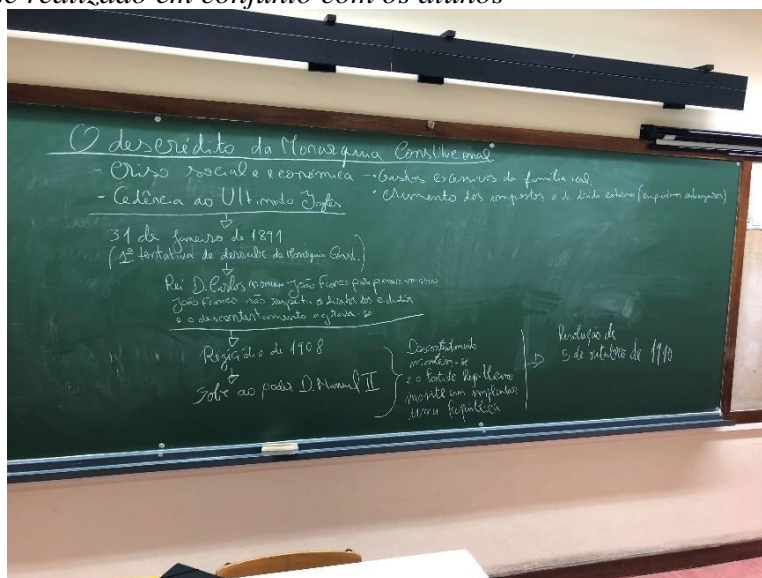 se realizado em conjunto com os alunos
O descrédito da Monarquia Constitucional
- Crise social e económica - · Gastos excessivos da família real
· Aumento dos impostos e da dívida externa (empréstimos estrangeiros)
- Cedência ao Ultimato Inglês
31 de janeiro de 1891
(1ª tentativa de derrube da Monarquia Const.)
Rei D. Carlos nomeia João Franco para primeiro-ministro
João Franco não respeita os direitos dos cidadãos
e o descontentamento agrava-se
Regicídio de 1908
Sobe ao poder D. Manuel II
Descontentamento
mantém-se
e o Partido Republicano
implantar
uma República
Revolução de
5 de outubro de 1910